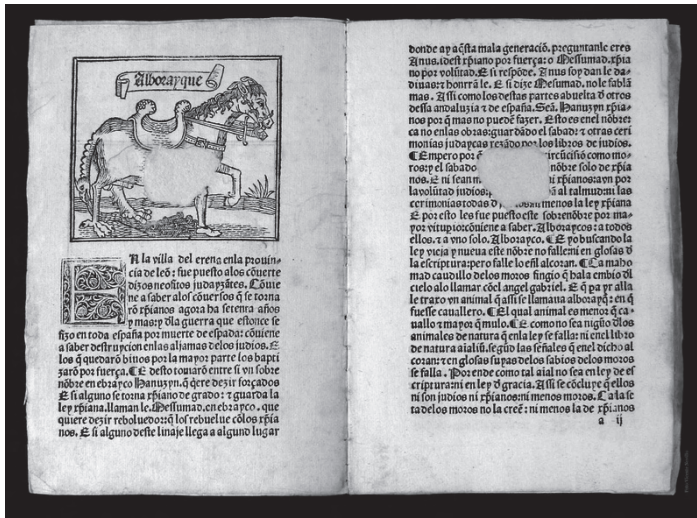 Alborayque
EN la villa del erena enla prouin
cia de leõ: fue puesto alos cõuerte
dizos neofitos judayzãtes. Cõuie
ne a saber alos cõuersos q̃ se torna
rõ xp̃ianos agora ha setenta años
y mas: por dla guerra que estonce se
fizo en toda españa por muerte de espada: cõuiene
a saber destruycion enlas aljamas delos judios. E
los q̃ quedarõ biuos por la mayor parte los bapti
zarõ por fuerça. CE desto tomarõ entre si vn sobre
nõbre en ebrayco Hanuzyn. q̃ q̃ere dezir forçados
E si alguno se torna xp̃iano de grado: ⁊ guarda la
ley xp̃iana. llaman le. Messumad. en ebrayco. que
quiere dezir reboluedor: q̃ los rebuelue cõlos xp̃ia
nos. E si alguno deste linaje llega a algund lugar
donde ay aq̃sta mala generaciõ. preguntanle eres
Anus. idest xp̃iano por fuerça: o Messumad. xp̃ia
no por volũtad. E si respõde. Anus soy dan le da-
diuas: ⁊ honrrã le. E si dize Mesumad. no le fablã
mas. Assi como los destas partes abuelta d̃ otros
dessa andaluzia ⁊ de españa. Seã. Hanuzyn xp̃ia-
nos por q̃ mas no puedẽ fazer. Esto es enel nõbre:
ca no enlas obras: guardãdo el sabado: ⁊ otras ceri
monias judaycas rezãdo por los libros de judios.
CEmpero por ircũcisiõ como mo-
ros: y el sabado nõbre solo de xp̃ia
nos. E ni sean m xp̃ianos: ayn por
la volũtad judios: ã al talmud: ni las
cerimonias todas ni menos la ley xp̃iana
E por esto les fue puesto este sobrenõbre por ma-
yor vituperio: cõuiene a saber. Alboraycos: a todos
ellos. ⁊ a vno solo. Alborayco. CE yo buscando la
ley vieja y nueua este nõbre no falle: ni en glosas d̃
la escriptura: pero falle lo eñl alcoran. CCa maho
mad caudillo delos moros fingio q̃ hala embio dl
cielo alo llamar cõel angel gabriel. E q̃ pa yr alla
le traxo vn animal q̃ assi se llamaua alborayq̃: en q̃
fuesse cauallero. El qual animal es menor q̃ ca-
uallo ⁊ mayor q̃ mulo. CE como no sea nigũo dlos
animales de natura q̃ enla ley se falla: ni enel libro
de natura aialiũ. segũo las señales q̃ enel dicho al
coran: ⁊ en glosas suyas delos sabios delos moros
se falla. Por ende como tal aial no sea en ley de es
criptura: ni en ley d̃ gracia. Assi se cõcluye q̃ ellos
ni son judios ni xp̃ianos: ni menos moros. Ca la se
ta delos moros no la creẽ: ni menos la de xp̃ianos
a ij